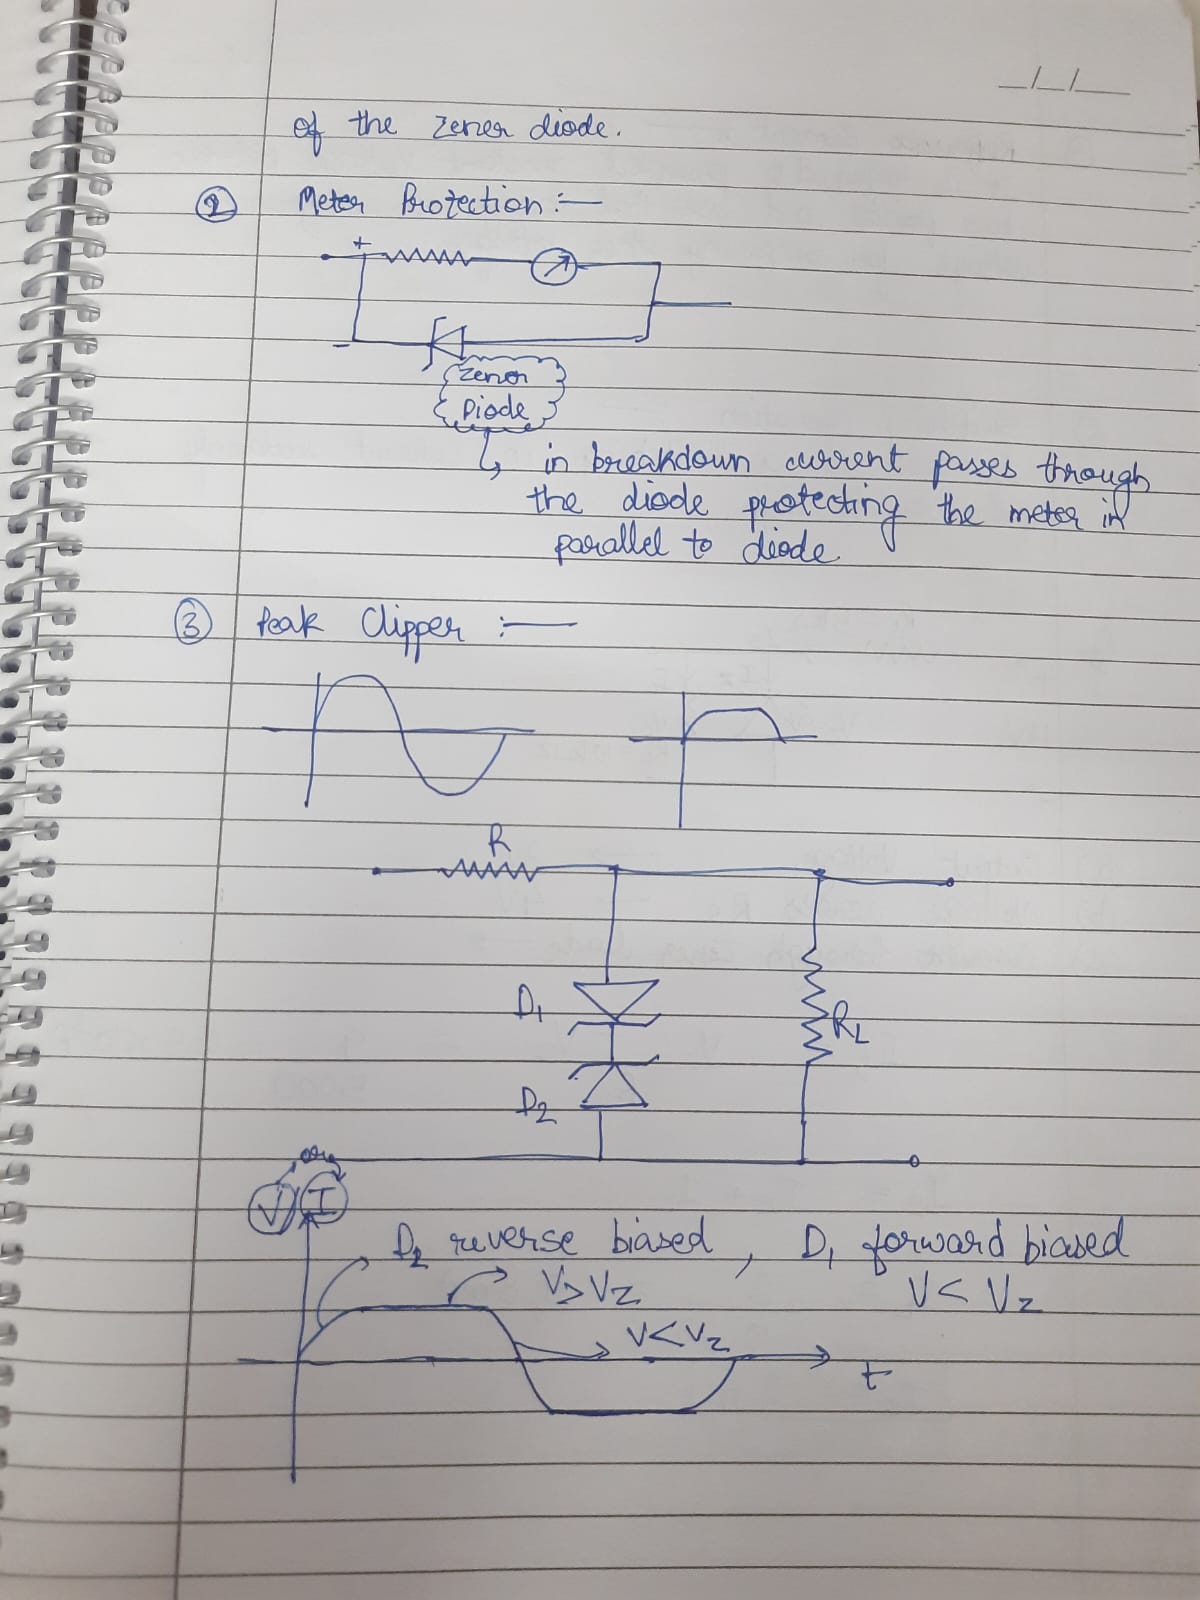 _/_/__
of the zener diode.
② Meter Protection :—
+
-
Zener
Diode
in breakdown current passes through
the diode protecting the meter in
parallel to diode
③ Peak Clipper :—
R
D1
RL
D2
or
V I
D2 reverse biased , D1 forward biased
V>VZ V<VZ
V<VZ
t